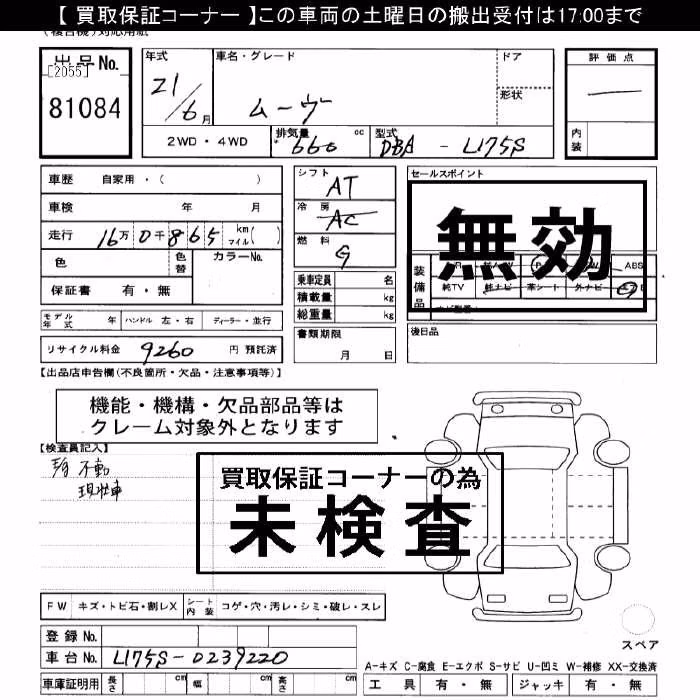 【 買取保証コーナー 】この車両の土曜日の搬出受付は17:00まで
出品No.
[2055]
81084
年式
21/6月
車名・グレード
ムーヴ
ドア
形状
2WD・4WD
排気量
660 cc
型式
DBA - L175S
評価点
内装
車歴 自家用・( )
車検 年 月
走行 16万 0千 8 6 5 km マイル( )
色 色替 カラーNo.
保証書 有・無
シフト AT
冷房 AC
燃料 G
乗車定員 名
積載量 kg
総重量 kg
書類期限
月 日
セールスポイント
無効
装備品
ABS
純TV 純ナビ 革シート 外ナビ
後日品
モデル年式 年 ハンドル 左・右 ディーラー・並行
リサイクル料金 9260 円 預託済
【出品店申告欄(不良箇所・欠品・注意事項等)】
機能・機構・欠品部品等は
クレーム対象外となります
【検査員記入】
不動
現状車
買取保証コーナーの為
未検査
FW キズ・トビ石・割レX シート内装 コゲ・穴・汚レ・シミ・破レ・スレ
スペア
登録No.
車台No. L175S-0239220
車庫証明用 長さ cm 幅 cm 高さ cm
A-キズ C-腐食 E-エクボ S-サビ U-凹ミ W-補修 XX-交換済
工具 有・無 ジャッキ 有・無